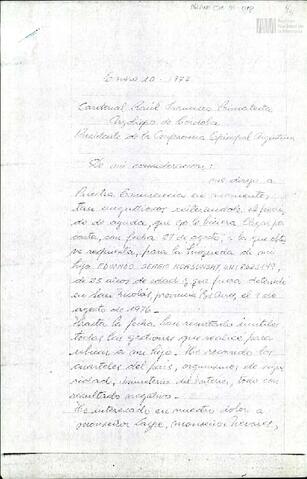 Enero 10 - 1977.
Cardenal Raúl Francisco Primatesta
Arzobispo de Córdoba
Presidente de la Conferencia Episcopal Argentina
De mi consideración:
me dirijo a
Vuestra Eminencia en momentos
tan angustiosos reiterando el pedido
de ayuda, que ya le hiciera llegar por
carta, con fecha 27 de agosto, y la que obtuve
respuesta, para la búsqueda de mi
hijo EDUARDO SERGIO
de 23 años de edad, que fuera detenido
en San Nicolás, provincia Bs. Aires, el
agosto de 1976.
Hasta la fecha han resultado inútiles
todas las gestiones que realicé para
ubicar a mi hijo. He recorrido los
cuarteles del país, organismos de segu-
ridad, ministerio del Interior, todo con
resultado negativo.
He interesado en nuestro dolor a
monseñor Laspe, monseñor